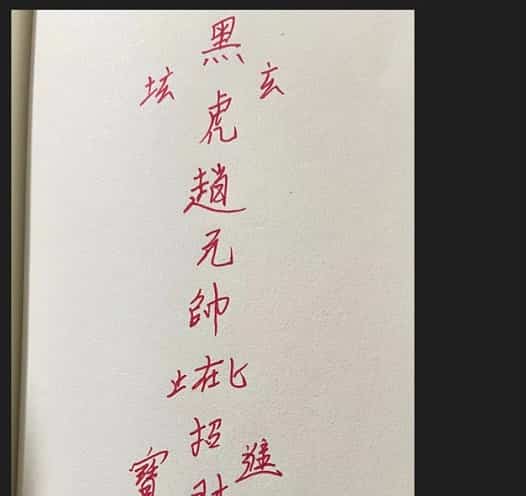 玄
黑虎趙元帥在招財
坛
進
寶